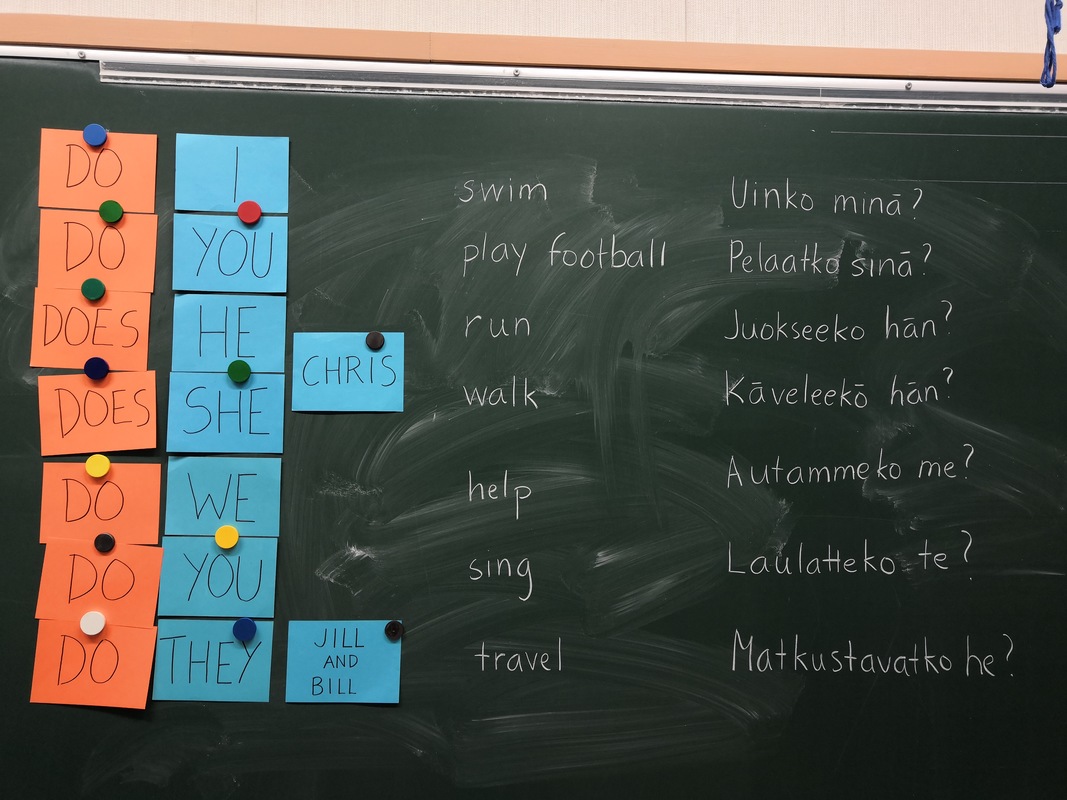 DO I swim Uinko minä?
DO YOU play football Pelaatko sinä?
DOES HE run Juokseeko hän?
CHRIS
DOES SHE walk Käveleekö hän?
DO WE help Autammeko me?
DO YOU sing Laulatteko te?
DO THEY travel Matkustavatko he?
JILL
AND
BILL